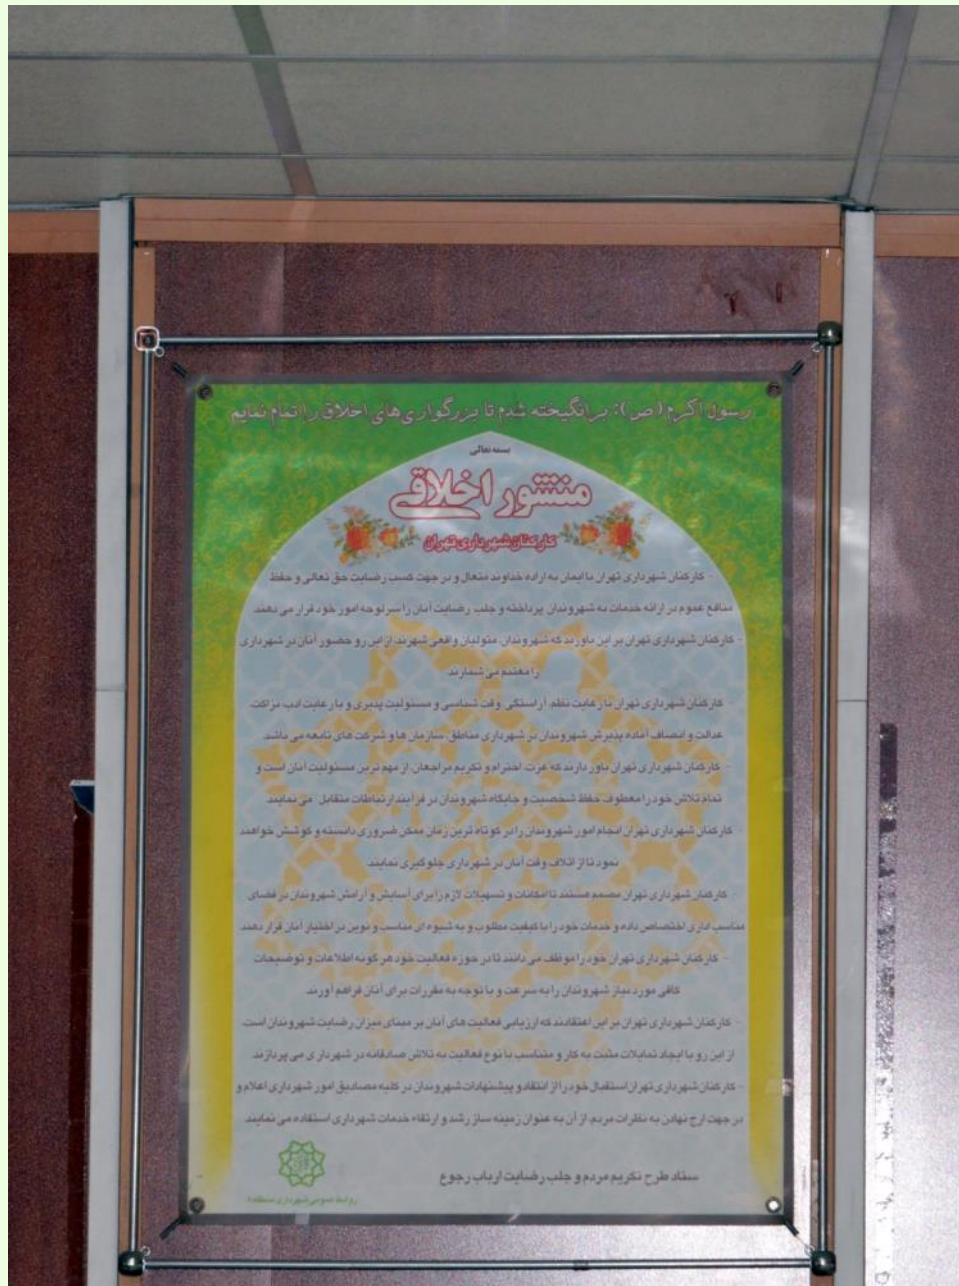 رسول اکرم (ص): برانگیخته شدم تا بزرگواری های اخلاق را تمام نمایم
بسمه تعالی
منشور اخلاقی
کارکنان شهرداری تهران
- کارکنان شهرداری تهران با ایمان به اراده خداوند متعال و در جهت کسب رضایت حق تعالی و حفظ
منافع عموم در ارائه خدمات به شهروندان پرداخته و جلب رضایت آنان را سرلوحه امور خود قرار می دهند
- کارکنان شهرداری تهران بر این باورند که شهروندان، متولیان واقعی شهرند، از این رو حضور آنان در شهرداری
را مغتنم می شمارند.
کارکنان شهرداری تهران با رعایت نظم، آراستگی، وقت شناسی و مسئولیت پذیری و با رعایت ادب، نزاکت،
عدالت و انصاف آماده پذیرش شهروندان در شهرداری مناطق، سازمان ها و شرکت های تابعه می باشد.
- کارکنان شهرداری تهران باور دارند که عزت، احترام و تکریم مراجعان، از مهم ترین مسئولیت آنان است و
تمام تلاش خود را معطوف حفظ شخصیت و جایگاه شهروندان در فرآیند ارتباطات متقابل می نمایند.
- کارکنان شهرداری تهران انجام امور شهروندان را در کوتاه ترین زمان ممکن ضروری دانسته و کوشش خواهند
نمود تا از اتلاف وقت آنان در شهرداری جلوگیری نمایند.
- کارکنان شهرداری تهران مصمم هستند تا امکانات و تسهیلات لازم را برای آسایش و آرامش شهروندان در فضای
مناسب اداری اختصاص داده و خدمات خود را با کیفیت مطلوب و به شیوه ای مناسب و نوین در اختیار آنان قرار دهند.
- کارکنان شهرداری تهران خود را موظف می دانند تا در حوزه فعالیت خود هر گونه اطلاعات و توضیحات
کافی مورد نیاز شهروندان را به سرعت و با توجه به مقررات برای آنان فراهم آورند.
- کارکنان شهرداری تهران بر این اعتقادند که ارزیابی فعالیت های آنان بر مبنای میزان رضایت شهروندان است،
از این رو با ایجاد تمایلات مثبت به کار و متناسب با نوع فعالیت به تلاش صادقانه در شهرداری می پردازند.
- کارکنان شهرداری تهران استقبال خود را از انتقاد و پیشنهادات شهروندان در کلیه مصادیق امور شهرداری اعلام و
در جهت ارج نهادن به نظرات مردم، از آن به عنوان زمینه ساز رشد و ارتقاء خدمات شهرداری استفاده می نمایند.
ستاد طرح تکریم مردم و جلب رضایت ارباب رجوع
روابط عمومی شهرداری منطقه